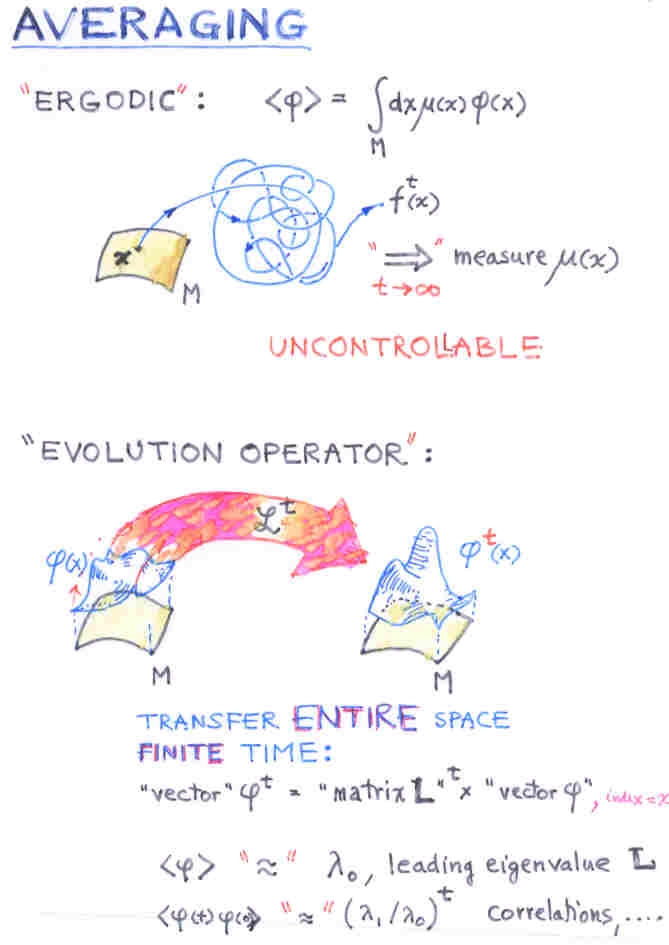 AVERAGING
"ERGODIC": <φ> = ∫ dx μ(x) φ(x)
M
fᵗ(x)
x
M
"⟹" measure μ(x)
t→∞
UNCONTROLLABLE
"EVOLUTION OPERATOR":
ℒᵗ
φ(x)
φᵗ(x)
M
M
TRANSFER ENTIRE SPACE
FINITE TIME:
"vector" φᵗ = "matrix L"ᵗ × "vector φ", index = x
<φ> "≈" λ₀, leading eigenvalue L
<φ(t) φ(0)> "≈" (λ₁/λ₀)ᵗ correlations, ....